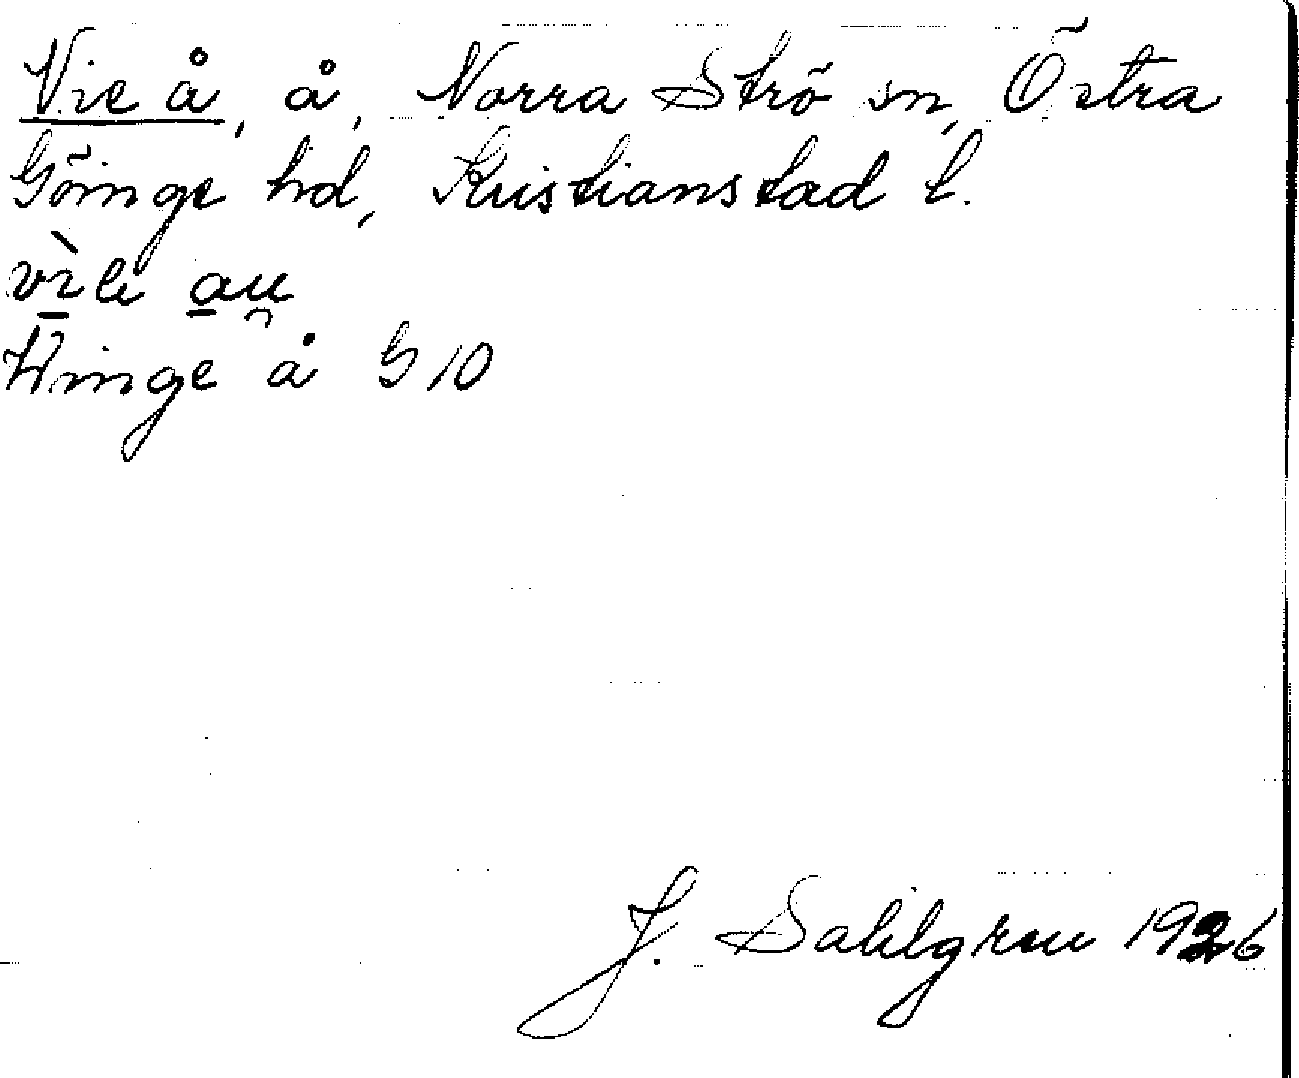 Vie å, å, Norra Strö sn, Östra
Göinge hd, Kristianstad l.
au̯
Winge å G 10
J. Sahlgren 1926